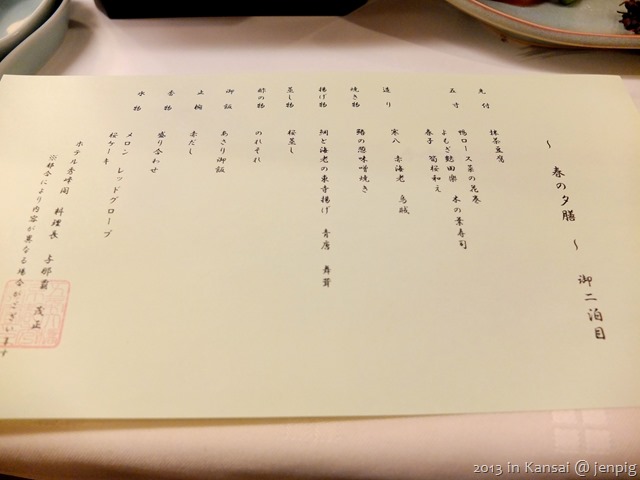 ～ 春の夕膳 ～ 御二泊目
先付 抹茶豆腐
五寸 鴨ロース菜の花巻
よもぎ麩田楽 木の葉寿司
春子 筍桜和え
造り 寒八 赤海老 烏賊
焼き物 鰆の葱味噌焼き
揚げ物 蛸と海老の東寺揚げ 青唐 舞茸
蒸し物 桜蒸し
酢の物 のれそれ
御飯 あさり御飯
止椀 赤だし
香物 盛り合わせ
水物 メロン レッドグローブ
桜ケーキ
ホテル秀峰閣 料理長 与那覇 茂正
※都合により内容が異なる場合がございます
2013 in Kansai @ jenpig